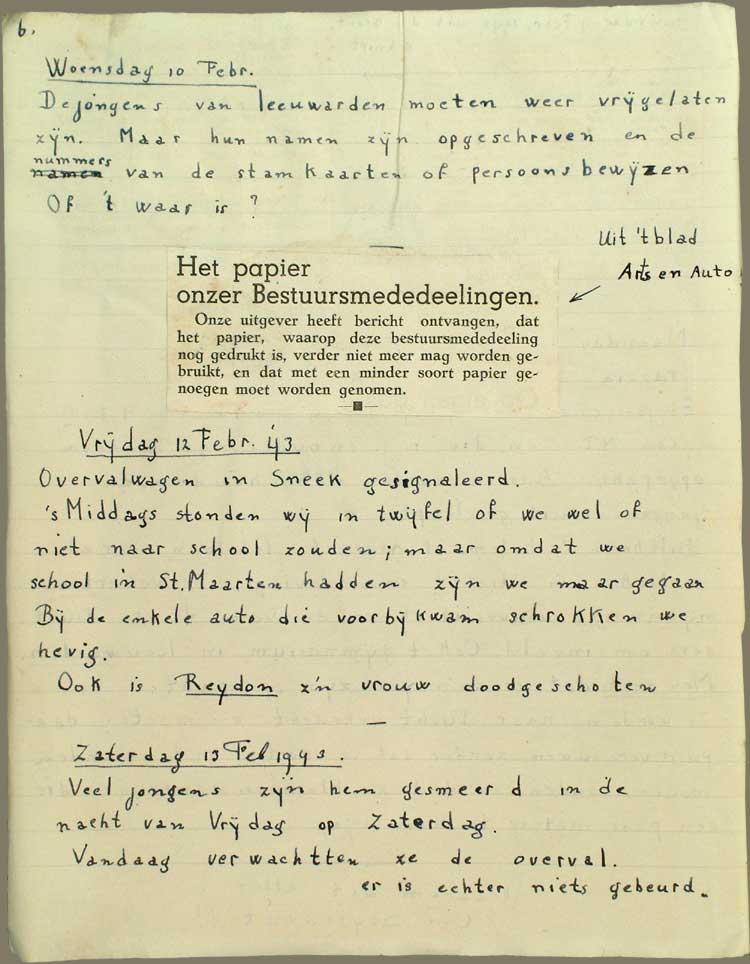 6.
Woensdag 10 Febr.
De jongens van leeuwarden moeten weer vrijgelaten
zijn. Maar hun namen zijn opgeschreven en de
nummers
namen van de stamkaarten of persoonsbewijzen
Of 't waar is ?
Uit 't blad
Arts en Auto
Het papier
onzer Bestuursmededeelingen.
Onze uitgever heeft bericht ontvangen, dat
het papier, waarop deze bestuursmededeeling
nog gedrukt is, verder niet meer mag worden ge-
bruikt, en dat met een minder soort papier ge-
noegen moet worden genomen.
Vrijdag 12 Febr. '43
Overvalwagen in Sneek gesignaleerd.
's Middags stonden wij in twijfel of we wel of
niet naar school zouden; maar omdat we
school in St. Maarten hadden zijn we maar gegaan
Bij de enkele auto die voorbij kwam schrokken we
hevig.
Ook is Reydon z'n vrouw doodgeschoten
Zaterdag 13 Feb 1943.
Veel jongens zijn hem gesmeerd in de
nacht van Vrijdag op Zaterdag.
Vandaag verwachtten ze de overval.
er is echter niets gebeurd.